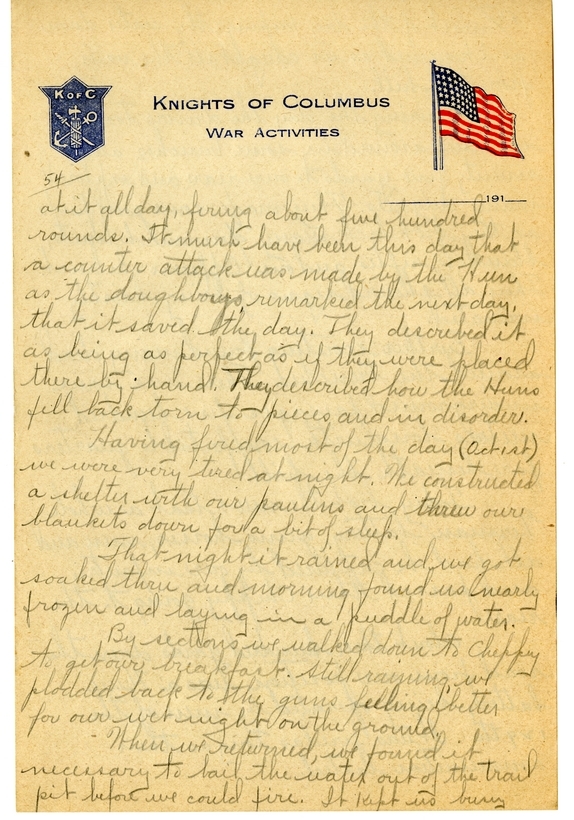 K OF C
KNIGHTS OF COLUMBUS
WAR ACTIVITIES
54
191
at it all day, firing about five hundred
rounds. It must have been this day that
a counter attack was made by the Hun
as the doughboys, remarked the next day,
that it saved the day. They described it
as being as perfect as if they were placed
there by hand. They described how the Huns
fell back torn to pieces and in disorder.
Having fired most of the day (Oct 1st)
we were very tired at night. We constructed
a shelter with our paulins and threw our
blankets down for a bit of sleep.
That night it rained and we got
soaked thru and morning found us nearly
frozen and laying in a puddle of water.
By sections we walked down to Cheppy
to get our breakfast. Still raining, we
plodded back to the guns feeling better
for our wet night on the ground.
When we returned, we found it
necessary to bail the water out of the trail
pit before we could fire. It kept us busy